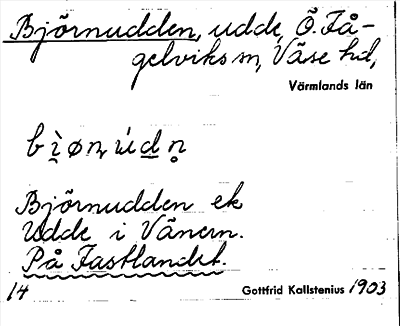 Björnudden, udde, Ö. Få-
gelviks sn, Väse hd,
Värmlands län
bi̯ø̀n,ùdn̥
Björnudden ek
Udde i Vänern.
På Fastlandet.
14 Gottfrid Kallstenius 1903